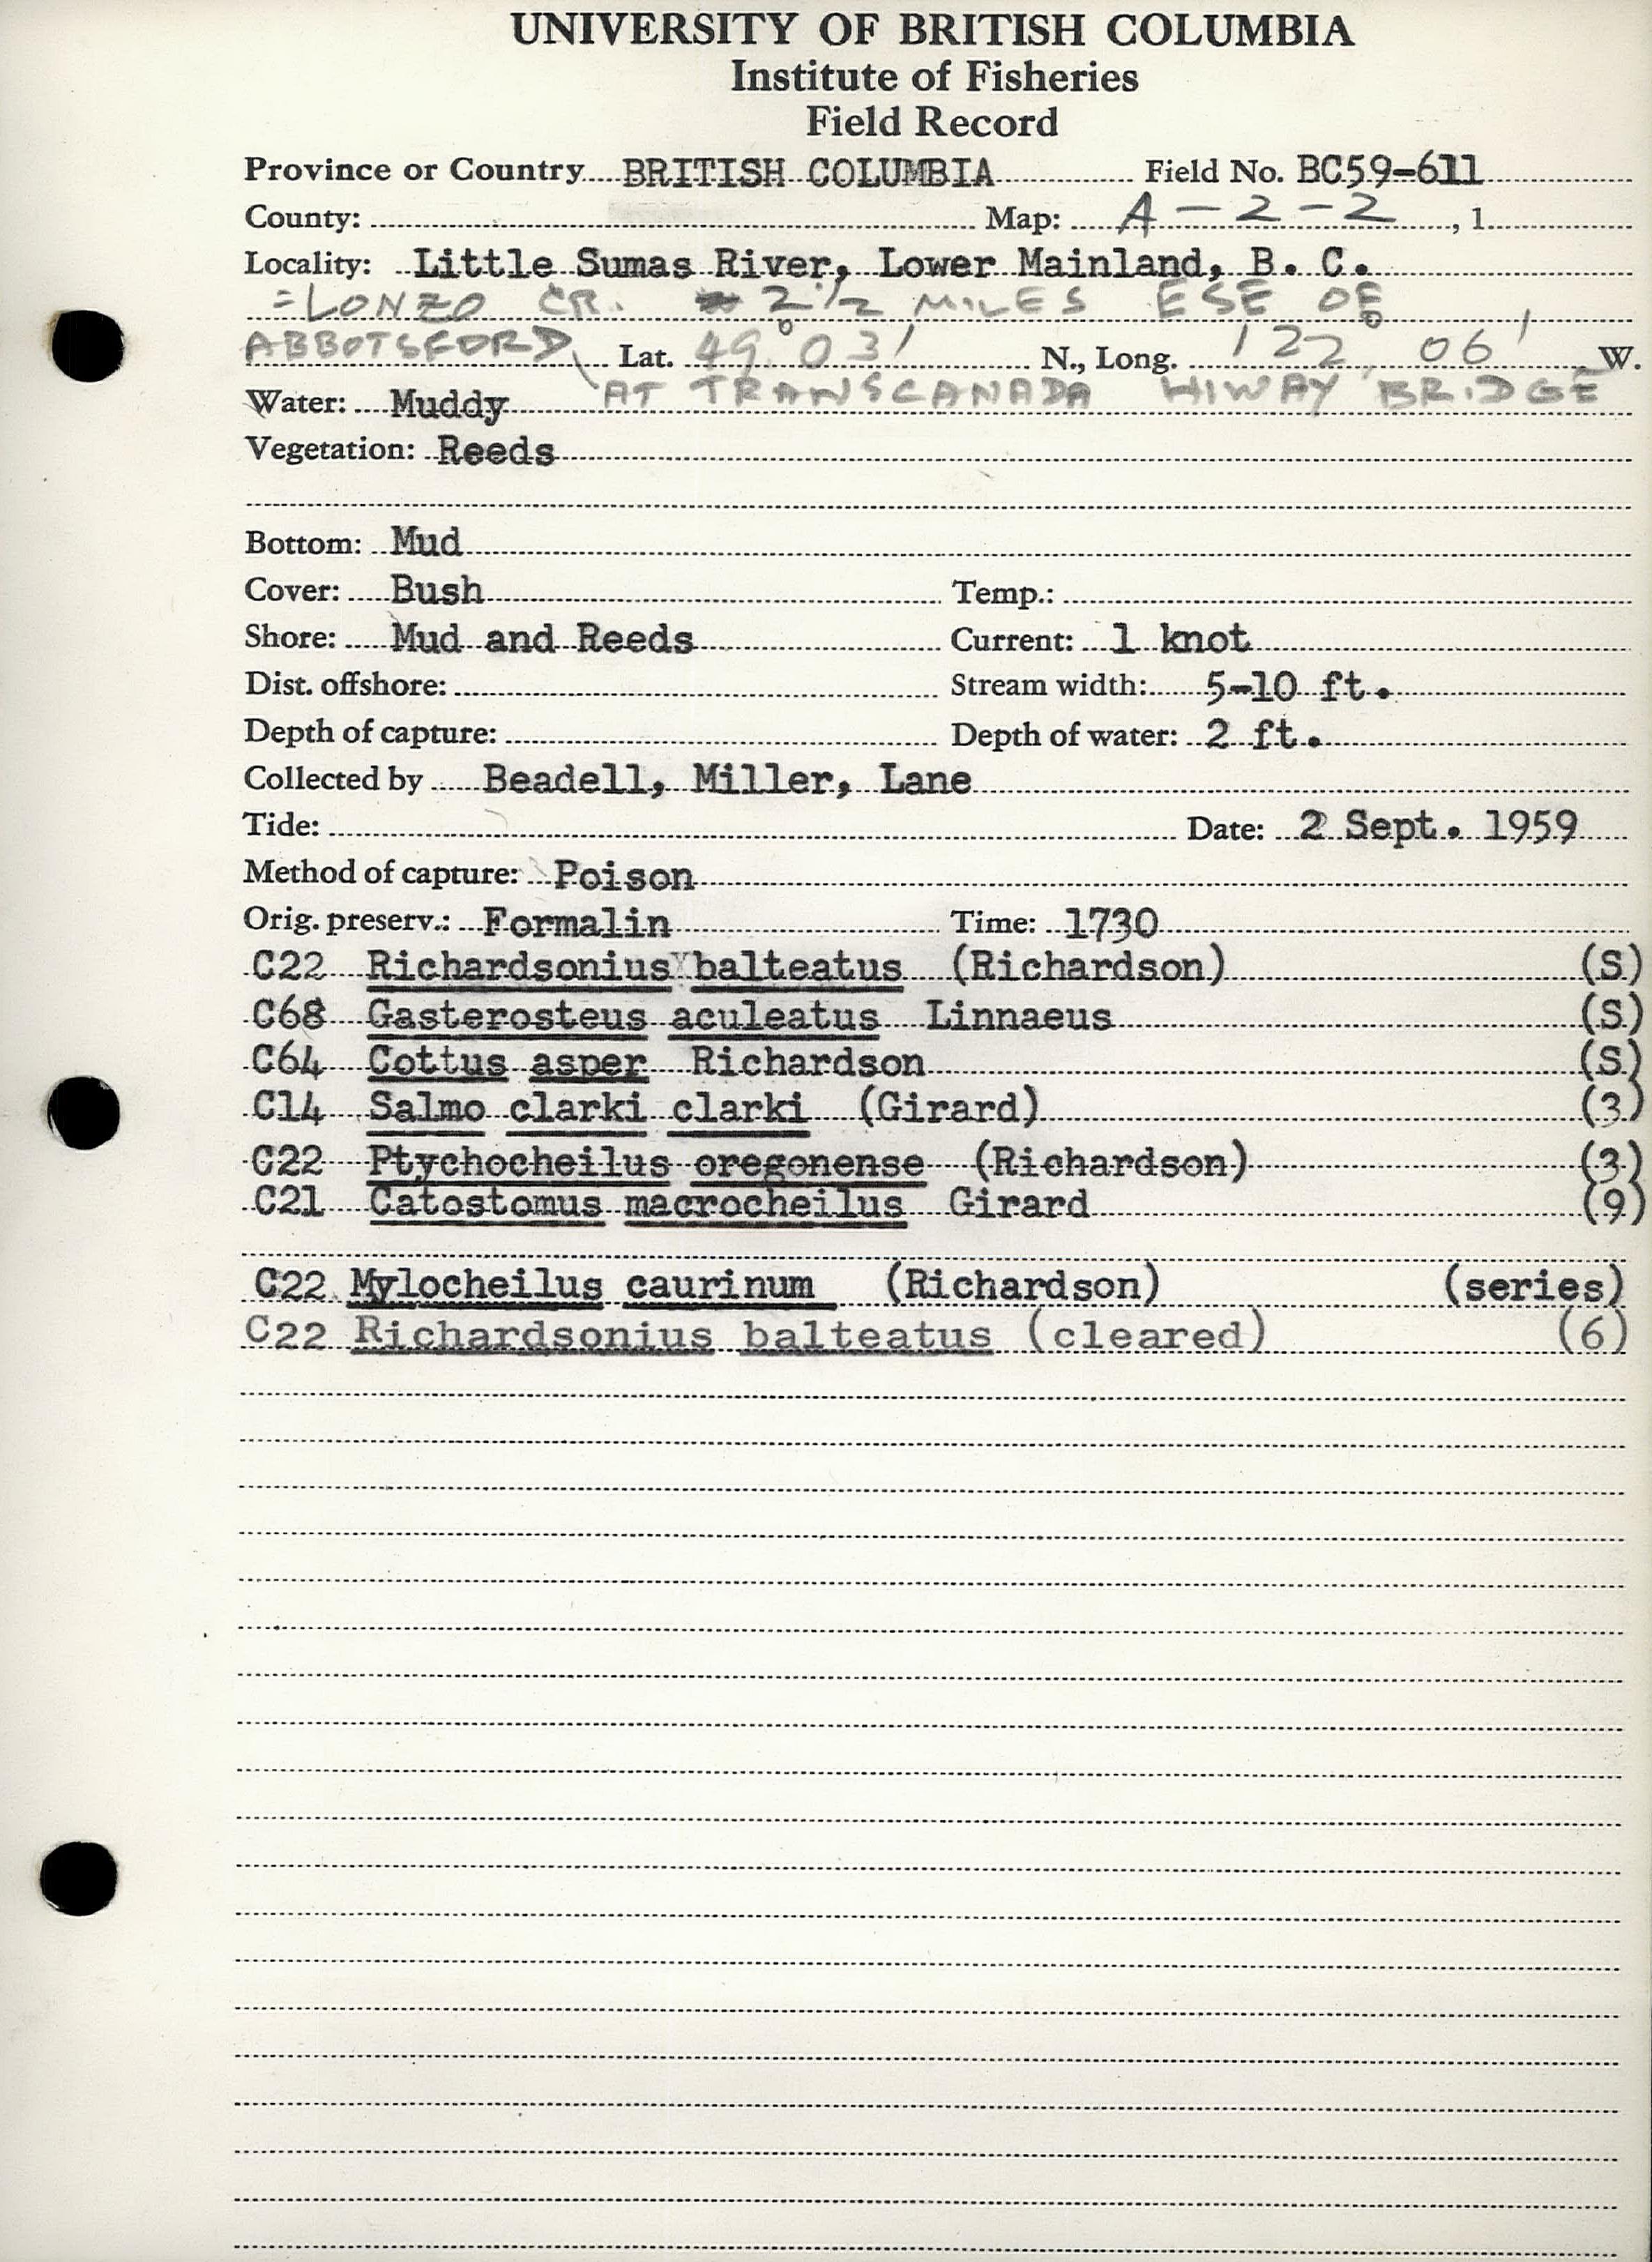 UNIVERSITY OF BRITISH COLUMBIA
Institute of Fisheries
Field Record
Province or Country BRITISH COLUMBIA Field No. BC59-611
County: Map: A-2-2, 1
Locality: Little Sumas River, Lower Mainland, B. C.
=LONZO CR. 2 1/2 MILES ESE OF
ABBOTSFORD, Lat. 49° 03' N., Long. 122° 06' W.
AT TRANSCANADA HIWAY BRIDGE
Water: Muddy
Vegetation: Reeds
Bottom: Mud
Cover: Bush Temp.:
Shore: Mud and Reeds Current: 1 knot
Dist. offshore: Stream width: 5-10 ft.
Depth of capture: Depth of water: 2 ft.
Collected by Beadell, Miller, Lane
Tide: Date: 2 Sept. 1959
Method of capture: Poison
Orig. preserv.: Formalin Time: 1730
C22 Richardsonius balteatus (Richardson) (S)
C68 Gasterosteus aculeatus Linnaeus (S)
C64 Cottus asper Richardson (S)
C14 Salmo clarki clarki (Girard) (3)
C22 Ptychocheilus oregonense (Richardson) (3)
C21 Catostomus macrocheilus Girard (9)
C22 Mylocheilus caurinum (Richardson) (series)
C22 Richardsonius balteatus (cleared) (6)